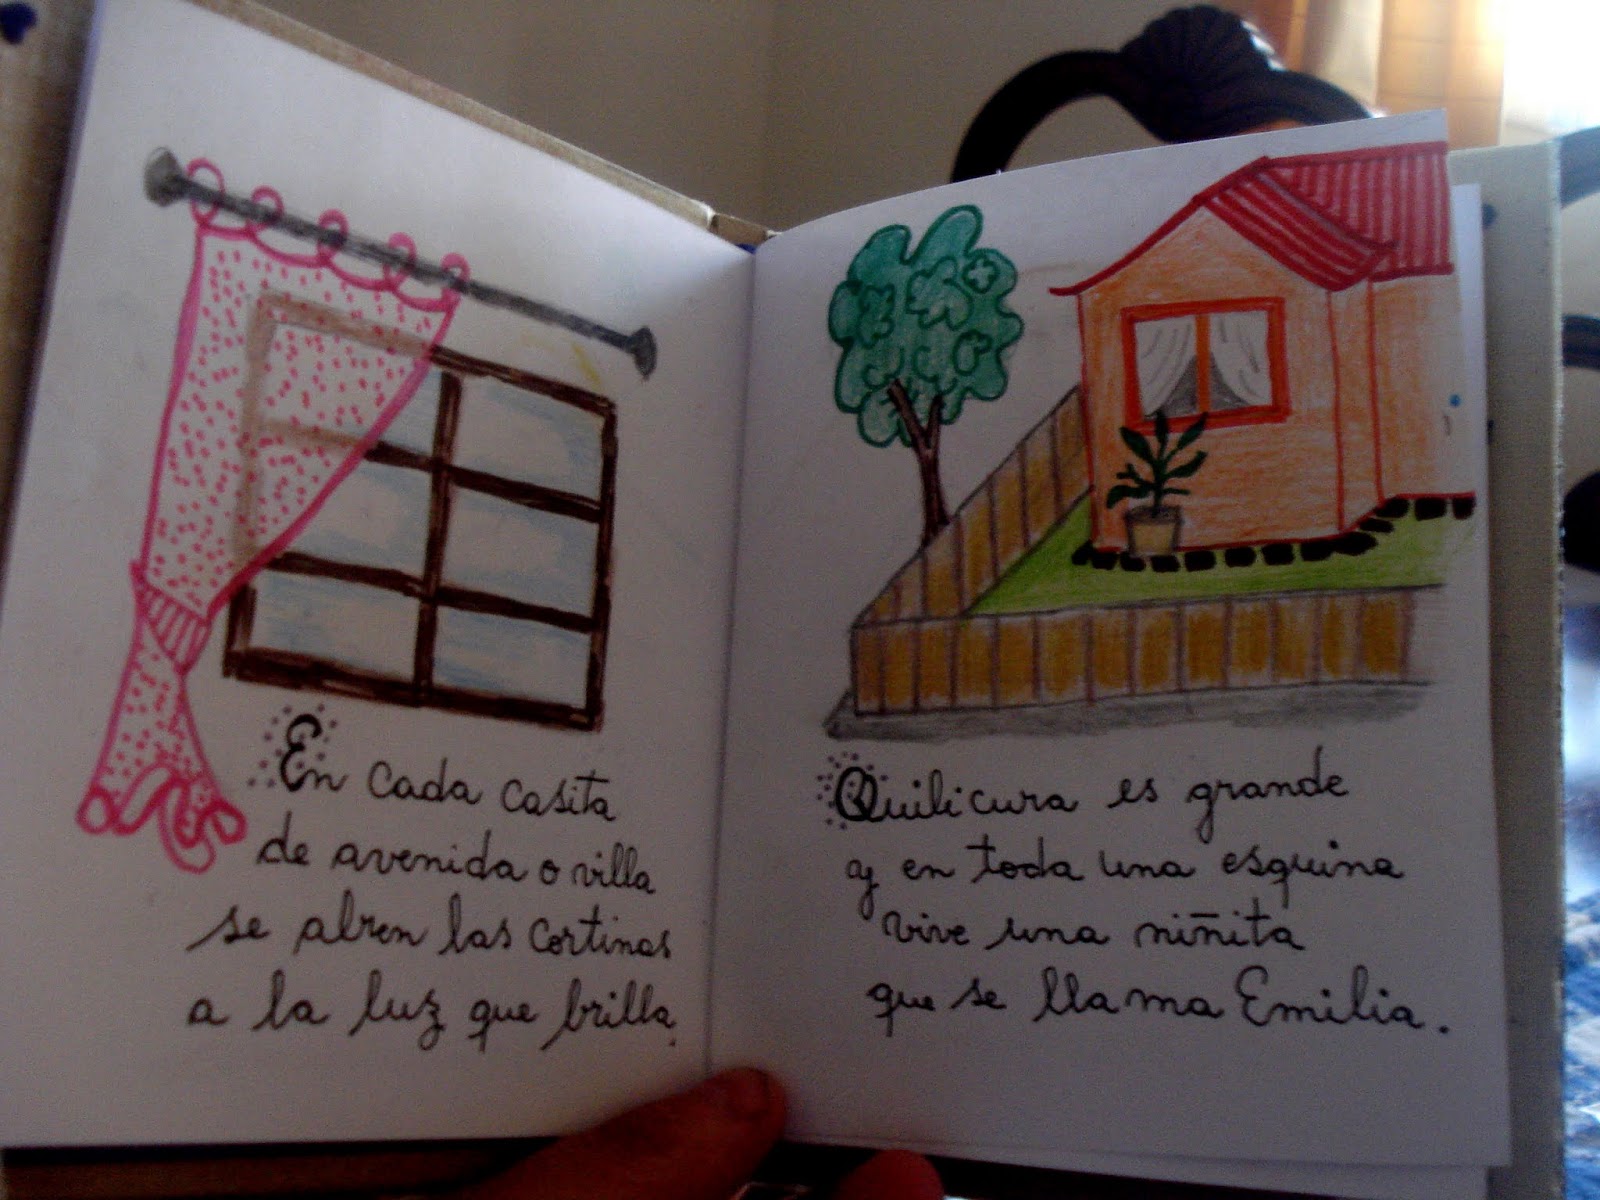 En cada casita
de avenida o villa
se abren las cortinas
a la luz que brilla.
Quilicura es grande
y en toda una esquina
vive una niñita
que se llama Emilia.